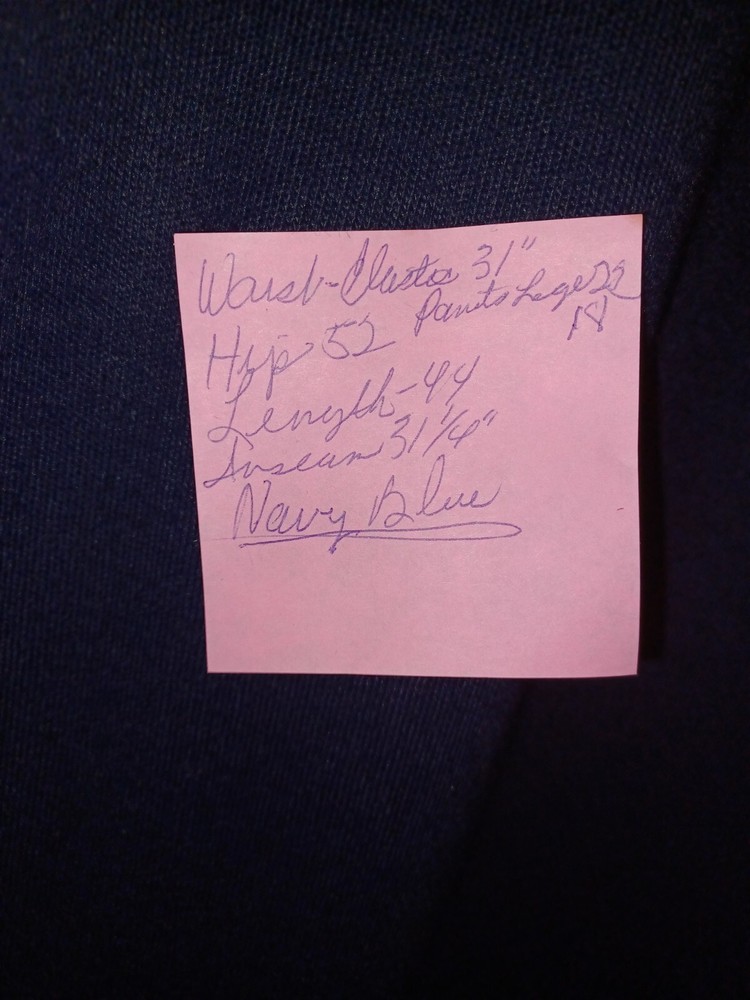 Waist-Elastic 31"
Hip 52 Pants Legs 22
Length-44
Inseam 31 1/4"
Navy Blue